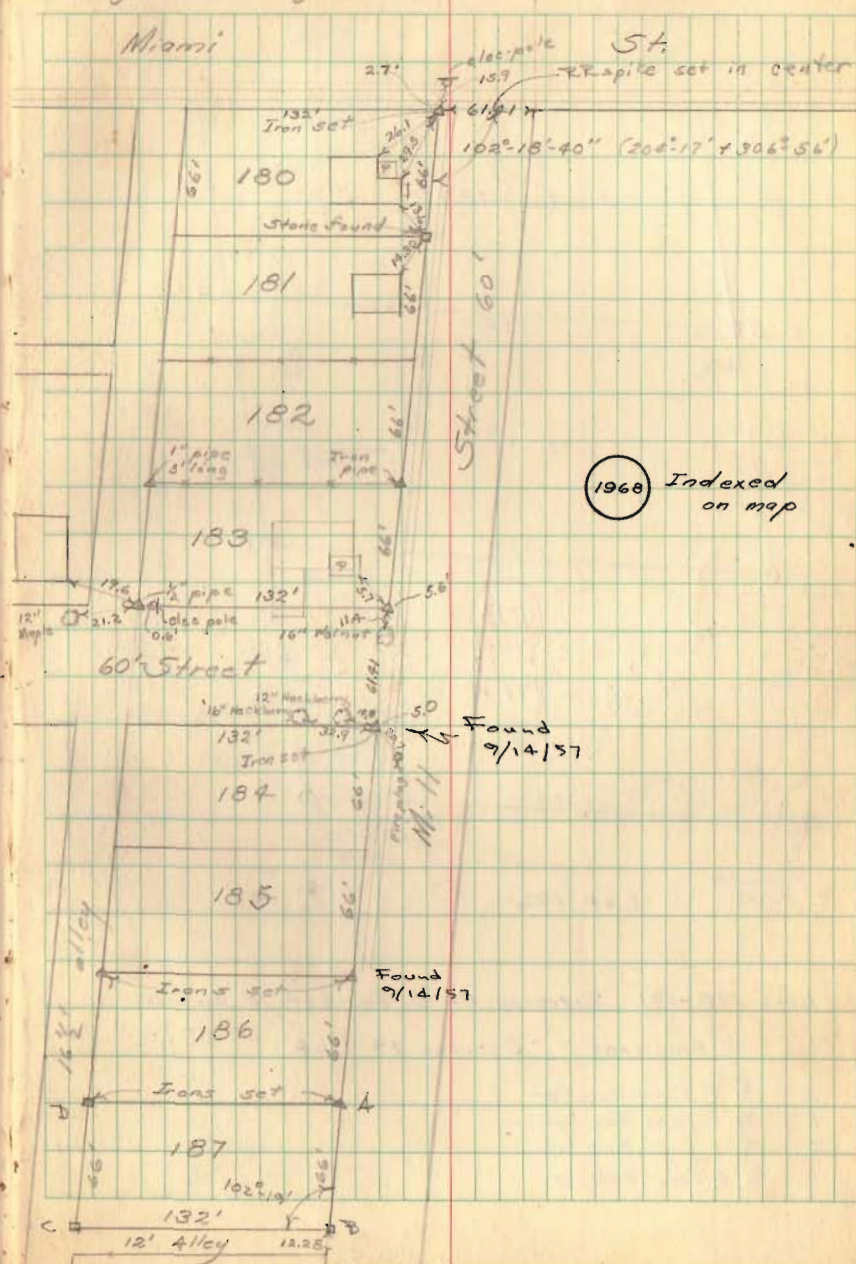 Miami St.
elec. pole
2.7'
15.9
RR spike set in center
132'
Iron set
61.41
26.1
29.5
102°-18'-40" (204°-17' + 306°-56')
66'
180
66'
Stone found
19.30
181
66'
Street 60'
182
66'
1" pipe
3' long
Iron
pipe
1968 Indexed
on map
183
66'
P
19.6
1/2" pipe
132'
5.7
5.6'
12"
Maple
21.2
elec pole
0.6'
11.4
16" Walnut
60' Street
61.41
12" Hackberry
16" Hackberry
5.0
132'
32.9
Found
9/14/57
Iron set
184
66'
Fire plug
Mill
185
66'
alley
Irons set
Found
9/14/57
186
16 1/2
66'
Irons set
D
A
187
66'
102°-19'
66'
C
132'
B
12' Alley
12.28